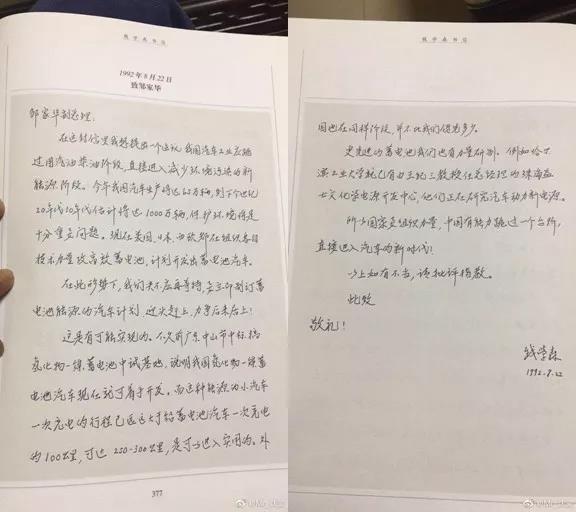 钱学森书信
1992年8月22日
致邹家华
邹家华副总理:
在这封信里我想提出一个建议:我国汽车工业应跳
过用汽油柴油阶段,直接进入减少环境污染的新
能源阶段。今年我国汽车生产将达 万辆,到下个世纪
20年代10年代估计将达1000万辆,保护环境将是
十分重要问题。现在美国、日本、西欧都在组织各自
技术力量攻高效蓄电池,计划开发出蓄电池汽车。
在此形势下,我们决不应再等待,要立即制订蓄
电池能源的汽车计划,迎头赶上,力争后来居上!
这是有可能实现的。不久前广东中山市中标搞
氢化物—镍蓄电池中试基地,说明我国氢化物—镍蓄
电池汽车现在就可着手开发。而这种能源的小汽车
一次充电的行程已远远大于铅蓄电池汽车一次充电
的100公里,可达250-300公里,是可以进入实用的。外
377
钱学森书信
国也在同样阶段,并不比我们领先多少。
更先进的蓄电池我们也有力量研制。例如哈尔
滨工业大学就已有 教授任总经理的珠海益
士文化学电源开发中心,他们正在研究汽车动力新电源。
所以国家要组织力量,中国有能力跳过一个台阶,
直接进入汽车的新时代!
以上如有不当,请批评指教。
此致
敬礼!
钱学森
1992.8.22